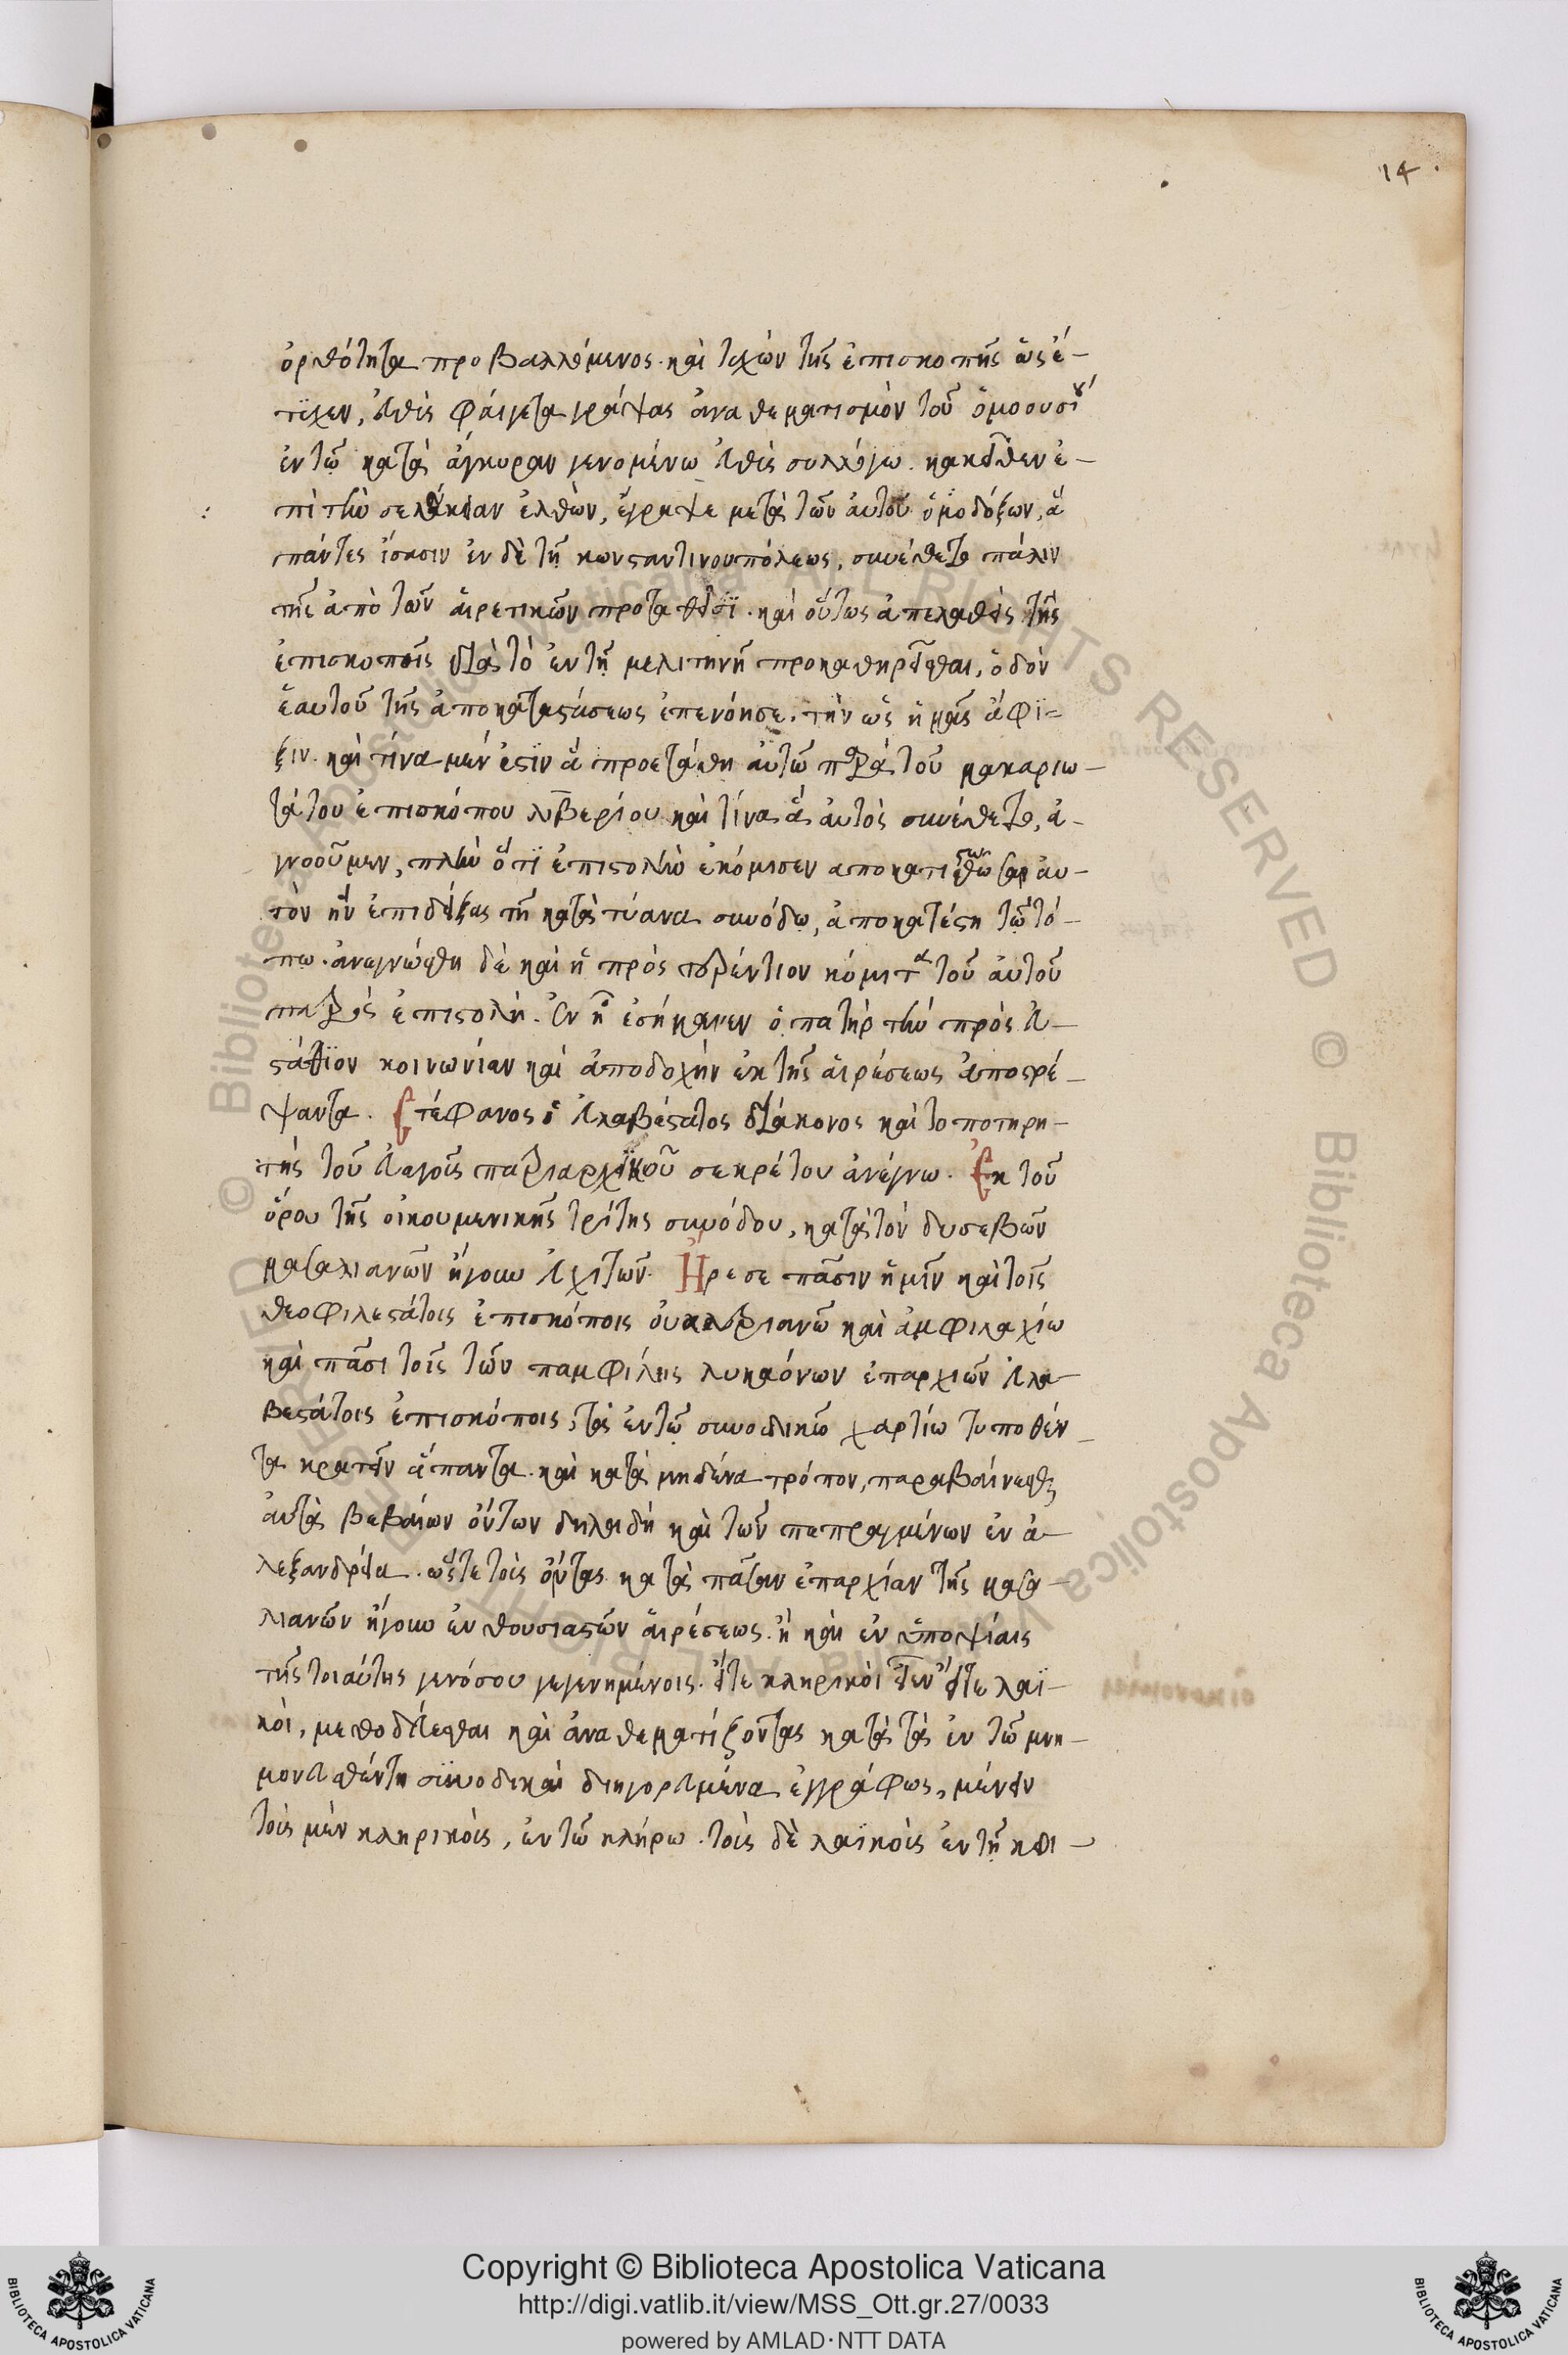 14.
ὀρθότητα προβαλλόμενος. καὶ τυχὼν τῆς ἐπισκοπῆς ὡς ἔ-
τϊχεν, εὐθὺς φάινεται γράψας ἀναθεματισμὸν τοῦ ὁμοουσίου
ἐν τῷ κατὰ ἄγκυραν γενομένω εὐθὺς συλλόγω. κακεῖθεν ἐ-
πὶ τὴν σελεύκειαν ἐλθὼν, ἔγραψε μετὰ τῶν ἀυτοῦ ὁμοδόξων, ἃ
πάντες ἴσασιν ἐν δὲ τῆ κωνσταντινουπόλεως, συνέθετο πάλιν
τῆς ἀπὸ τῶν ἁιρετικῶν προταθεῖσϊ. καὶ οὕτως ἀπελαθεὶς τῆς
ἐπισκοπῆς διὰ τὸ ἐν τῇ μελιτηνῆ προκαθηρεῖσθαι, ὁδὸν
ἑαυτοῦ τῆς ἀποκαταστάσεως ἐπενόησε. τὴν ὡς ἡμᾶς ἄφϊ-
ξιν. καὶ τίνα μέν ἐστϊν ἃ προετάθη ἀυτῶ παρὰ τοῦ μακαριω-
τάτου ἐπισκόπου λιβερίου καὶ τίνα ἃ ἀυτὸς συνέθετο, ἀ-
γνοοῦμεν, πλὴν ὅτϊ ἐπιστολὴν ἐκόμισεν αποκατιστῶσαν ἀυ-
τὸν ἣν ἐπιδείξας τῆ κατὰ τύανα συνόδω, ἀποκατέστη τῷ τό-
πω. ἀνεγνώσθη δὲ καὶ ἡ πρὸς τερέντιον κόμιτα τοῦ ἀυτοῦ
πατρὸς ἐπιστολὴ. ἐν ἧ ἐσήμανεν ὁ πατὴρ τὴν πρὸς εὐ-
στάθϊον κοινωνίαν καὶ ἀποδοχὴν ἐκ τῆς ἁιρέσεως ἀποστρέ-
ψαντα. Στέφανος ὁ εὐλαβέστατος διάκονος καὶ τοποτηρη-
τὴς τοῦ εὐαγοῦς πατριαρχϊκοῦ σεκρέτου ἀνέγνω. Ἐκ τοῦ
ὅρου τῆς οἰκουμενικῆς τρίτης συνόδου, κατὰ τὸν δυσεβῶν
μασαλιανῶν ἤγουν εὐχιτῶν. Ἤρεσε πᾶσιν ἡμῖν καὶ τοῖς
θεοφιλεστάτοις ἐπισκόποις ουαλεριανῶ καὶ ἀμφιλαχίω
καὶ πᾶσι τοῖς τῶν παμφίλεις λυκαόνων ἐπαρχιῶν εὐλα-
βεστάτοις ἐπισκόποις, τὰ ἐν τῷ συνοδικῶ χαρτίω τυποθέν-
τα κρατεῖν ἅπαντα. καὶ κατὰ μηδένα τρόπον, παραβαίνεσθαι
ἀυτὰ βεβαίων ὄντων δηλαδὴ καὶ τῶν πεπραγμένων ἐν ἀ-
λεξανδρεία. ὥστε τοὺς ὄντας κατὰ πᾶσαν ἐπαρχίαν τῆς μασα-
λιανῶν ἤγουν ἐνθουσιαστῶν ἁιρέσεως. ἢ καὶ ἐν ὑποψίαις
τῆς τοιαύτης γενόσου γεγενημένοις. εἴτε κληρικὸι εἶεν εἴτε λαϊ-
κὸι, μεθοδεύεσθαι καὶ ἀναθεματίζοντας κατὰ τὰ ἐν τῶ μνη-
μονευθέντη σϋνοδικαὶ διηγορευμένα ἐγγράφως, μένειν
τοὺς μὲν κληρικὸυς, ἐν τῶ κλήρω. τοὺς δὲ λαϊκὸυς ἐν τῆ κοι-
Copyright © Biblioteca Apostolica Vaticana
http://digi.vatlib.it/view/MSS_Ott.gr.27/0033
powered by AMLAD·NTT DATA